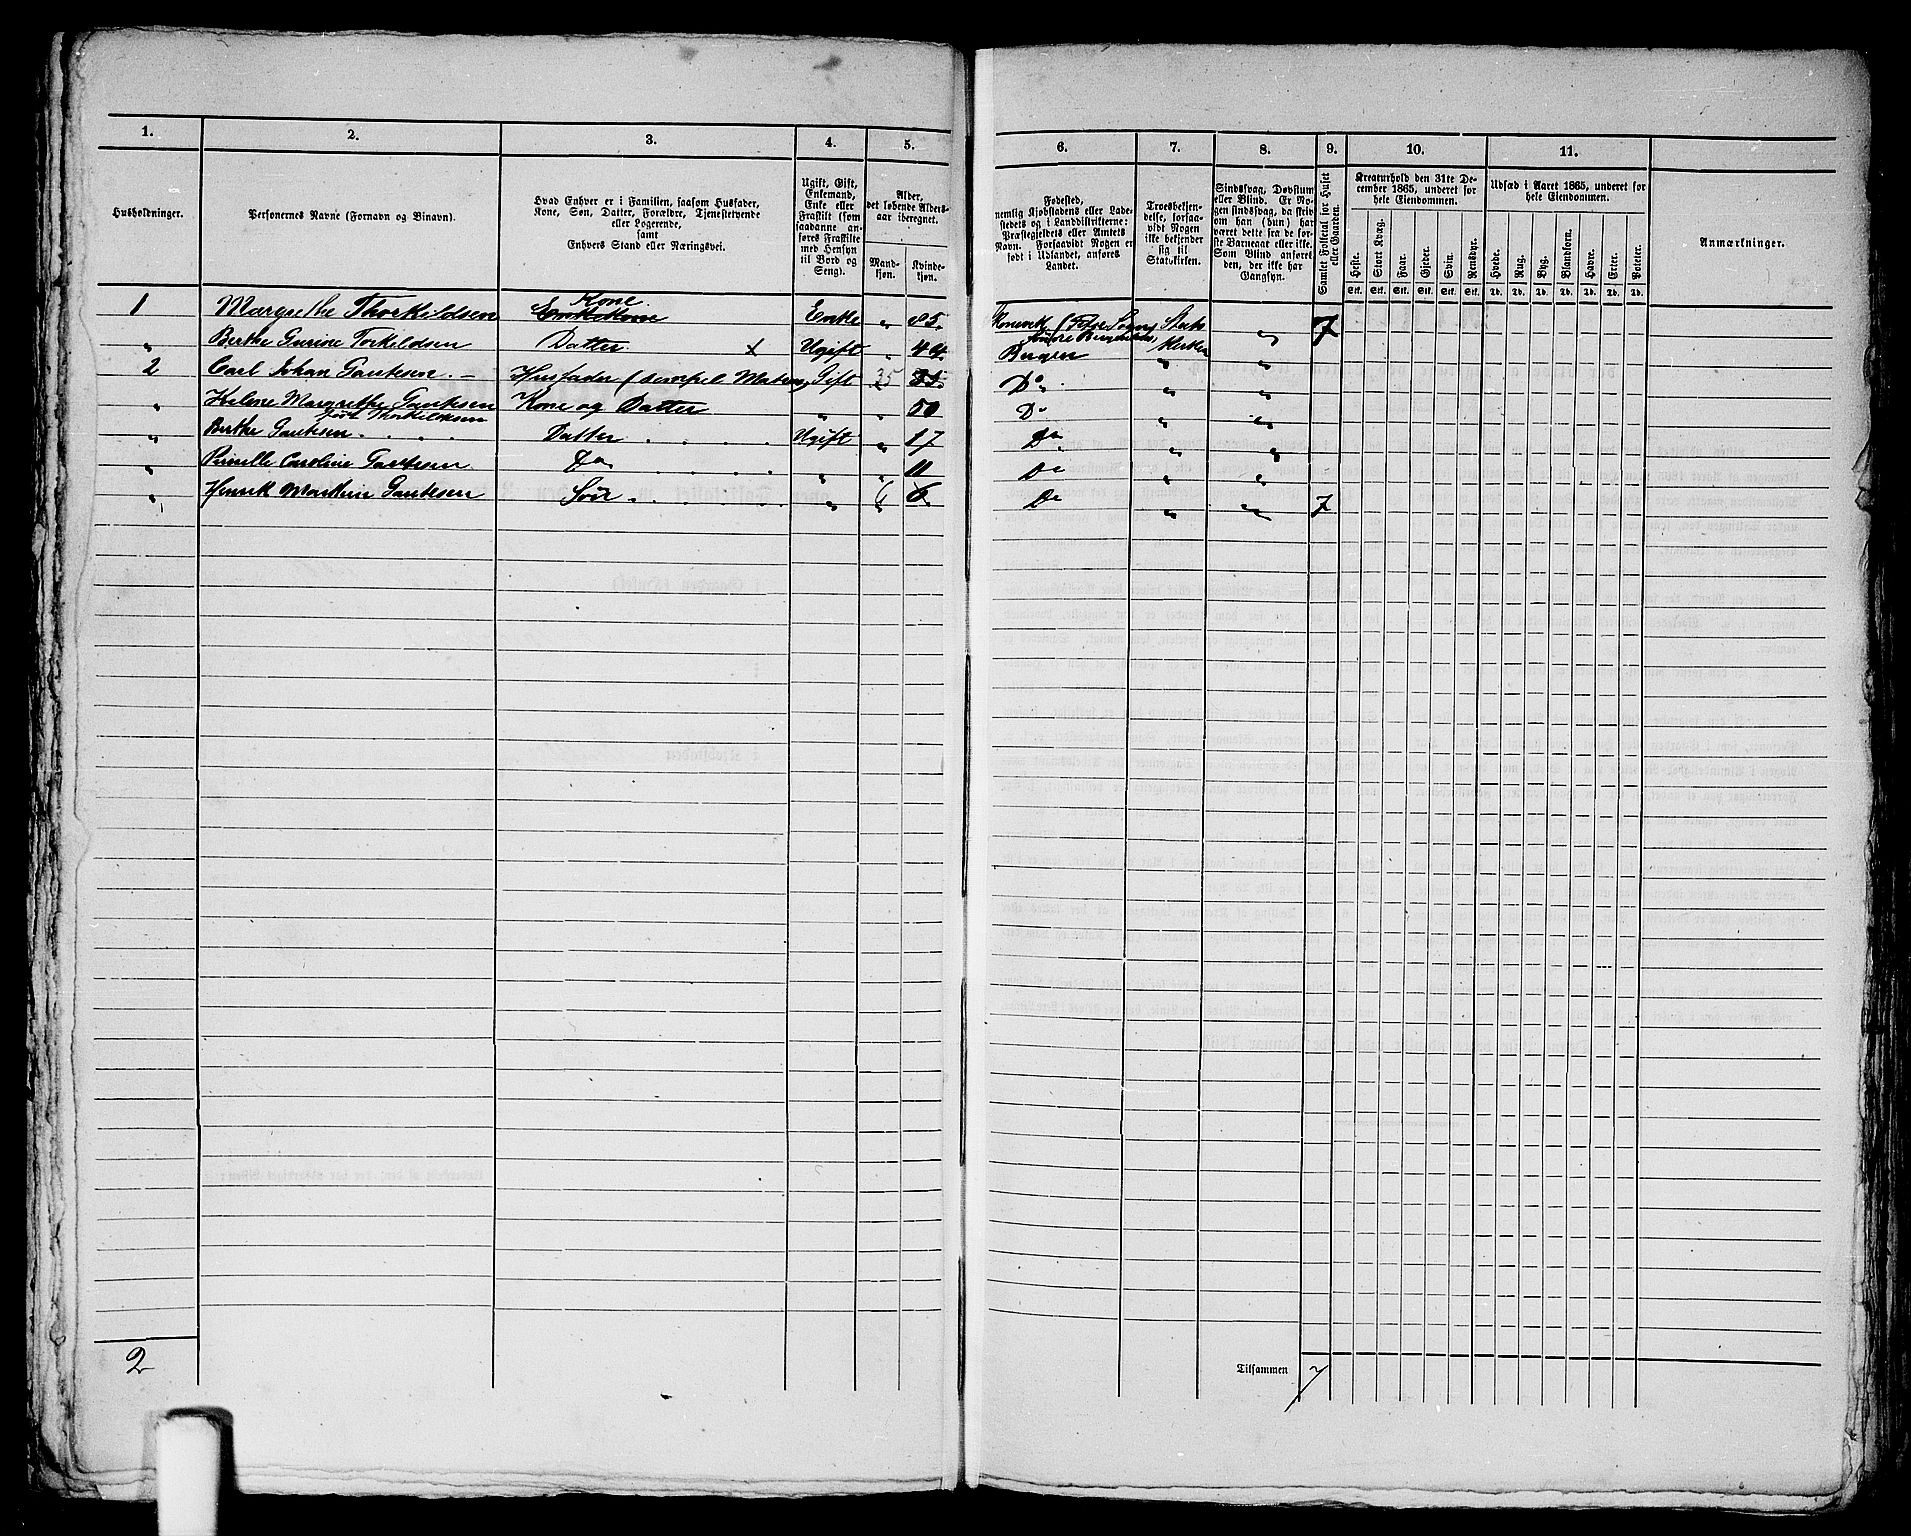 1. 2. 3. 4. 5. 6. 7. 8. 9. 10. 11.
Husholdninger.
Personernes Navne (Fornavn og Binavn).
Hvad Enhver er i Familien, saasom Husfader,
Kone, Søn, Datter, Forældre, Tjenestetyende
eller Logerende,
samt
Enhvers Stand eller Næringsvei.
Ugift, Gift,
Enkemand,
Enke eller
Fraskilt (som
saadanne an-
føres Fraskilte
med Hensyn
til Bord og
Seng).
Alder,
det løbende Alders-
aar iberegnet.
Mand-
kjøn.
Kvinde-
kjøn.
Fødested,
nemlig Kjøbstadens eller Lade-
stedets og i Landdistrikterne:
Præstegjeldets eller Amtets
Navn. Forsaavidt Nogen er
født i Udlandet, anføres
Landet.
Troesbekjen-
delse, forsaa-
vidt Nogen
ikke bekjender
sig til
Statskirken.
Sindssvag, Døvstum
eller Blind. Er No-
gen sindssvag, da skriv
om han (hun) har
været dette fra de før-
ste Barneaar eller ikke.
Som Blind anføres
den, der ikke har
Gangsyn.
Samlet Folketal for Huset
eller Gaarden.
Kreaturhold den 31te De-
cember 1865, underet for
hele Eiendommen.
Heste. Stort Kvæg. Faar. Gjeder. Svin. Rensdyr.
Stk. Stk. Stk. Stk. Stk. Stk.
Udsæd i Aaret 1865, underet for
hele Eiendommen.
Hvede. Rug. Byg. Blandkorn. Havre. Erter. Poteter.
Td. Td. Td. Td. Td. Td. Td.
Anmærkninger.
1 Margrethe Thorkildsen Kone Enke 85. Stats 7
" Berthe Gurine Torkildsen Datter. x Ugift " 44. Bergen Kirken
2 Carl Johan Gautesen. – Husfader Gift 35 35 Do " "
" Helene Margrethe Gautesen Kone og Datter " " 50 Do " "
født Thorkildsen
" Berthe Gautesen. Datter Ugift " 17 Do " "
" Pernille Caroline Gautesen Do " " 11 Do " "
" Henrik Martinus Gautesen Søn. " 6 6 Do " " 7
2 Tilsammen 7